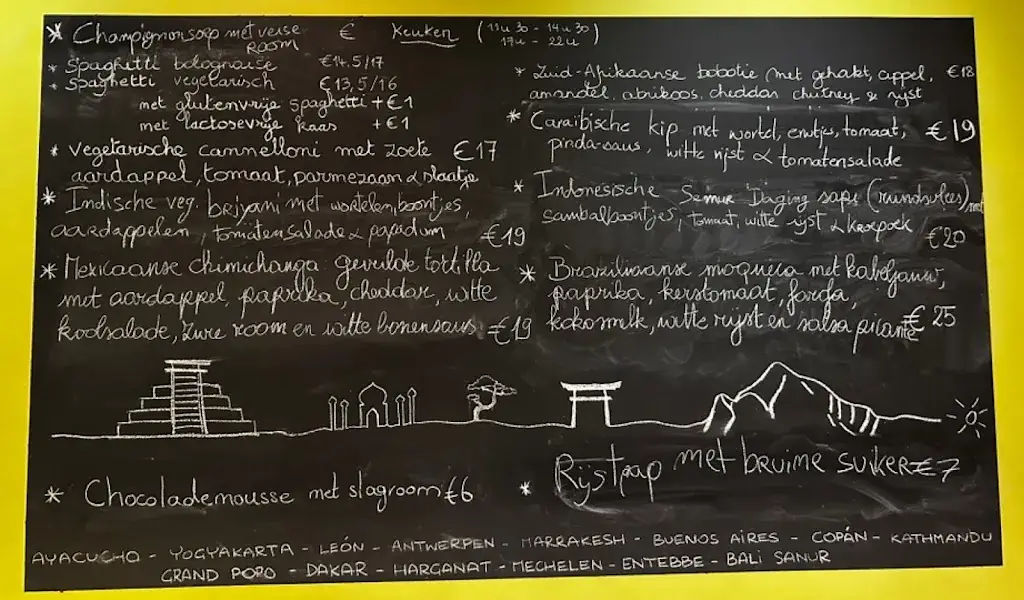 * Champignonsoep met verse
ROOM
€
Keuken (11u30 - 14u30
17u - 22u)
* Spaghetti bolognaise €14.5/17
* Spaghetti vegetarisch €13,5/16
met glutenvrije spaghetti +€1
met lactosevrije kaas +€1
* Vegetarische cannelloni met zoete €17
aardappel, tomaat, parmezaan & slaatje
* Indische veg. briyani met wortelen, boontjes,
aardappelen, tomatensalade & papadum €19
* Mexicaanse chimichanga: gevulde tortilla
met aardappel, paprika, cheddar, witte
koolsalade, zure room en witte bonensaus €19
* Zuid-Afrikaanse bobotie met gehakt, appel, €18
amandel, abrikoos, cheddar chutney & rijst
* Caraïbische kip met wortel, erwtjes, tomaat, €19
pinda-saus, witte rijst & tomatensalade
* Indonesische Semur Daging sapi (rundsvlees) met
sambalboontjes, tomaat, witte rijst & kroepoek €20
* Braziliaanse moqueca met kabeljauw,
paprika, kerstomaat, farofa,
kokosmelk, witte rijst en salsa picante €25
* Chocolademousse met slagroom €6
* Rijstpap met bruine suiker €7
AYACUCHO - YOGYAKARTA - LEÓN - ANTWERPEN - MARRAKESH - BUENOS AIRES - COPÁN - KATHMANDU
GRAND POPO - DAKAR - HARGANAT - MECHELEN - ENTEBBE - BALI SANUR